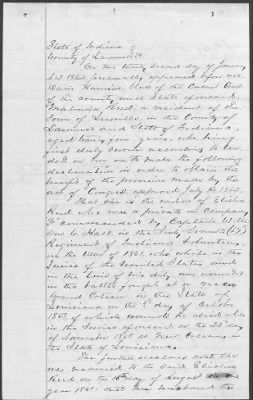 State of Indiana
County of Lawrence SS
On this twenty second day of January
A.D. 1864, personally appeared before me
Davis Harrison, Clerk of the Circuit Court
of the county and State aforesaid
Reed, a resident of the
Town of , in the County of
Lawrence and State of Indiana,
aged twenty years, who, being
first duly sworn according to law
doth on her oath make the following
declaration in order to obtain the
benefit of the provision made by the
act of Congress approved July 14, 1862.
That she is the widow of Elisha
Reed who was a private in Company
commanded by Captain
C. Hall in the Sixty Seventh (67)
Regiment of Indiana Volunteers,
in the War of 1861, who while in the
Service of the United States and
in the line of his duty, was wounded
in the battle fought at or near
Grand Coteau in the State of
Louisiana on the day of
1863, of which wounds he died while
in the Service aforesaid on the 22d day
of November 1863 at New Orleans, in
the State of Louisiana.
She further declares that she
was married to the said Elisha
Reed on the day of August
year 186 that her husband the